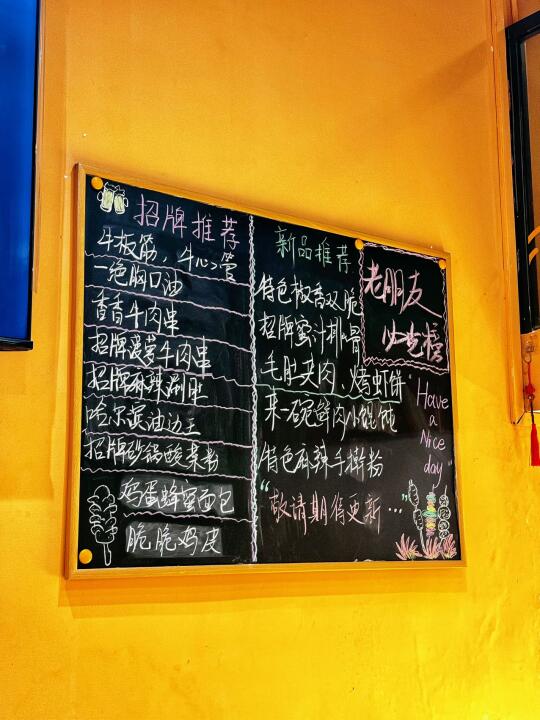 招牌推荐
牛板筋，牛心管
一绝胸口油
香香牛肉串
招牌菠萝牛肉串
招牌麻辣涮肚
哈尔滨油边王
招牌砂锅酸菜粉
鸡蛋蜂蜜面包
脆脆鸡皮
新品推荐
特色椒香双脆
招牌蜜汁排骨
毛肚夹肉、烤虾饼
来一碗鲜肉小馄饨
特色麻辣手擀粉
“敬请期待更新…”
老朋友
必吃榜
Have
a
Nice
day